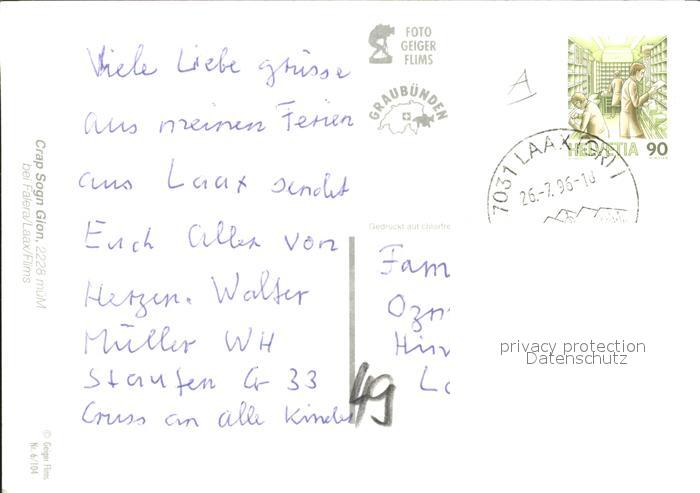 Viele Liebe grüsse
aus meinen Ferien
aus Laax sendet
Euch Allen von
Herzen. Walter
Müller WH
Staufen G 33
Gruss an alle Kinder
49
FOTO
GEIGER
FLIMS
GRAUBÜNDEN
A
HELVETIA 90
7031 LAAX (GR) 1
26.-7.96-18
Gedruckt auf chlorfre
Fam
Hin
privacy protection
Datenschutz
Crap Sogn Gion, 2228 müM
bei Falera/Laax/Flims
© Geiger Flims
Nr. 6/104